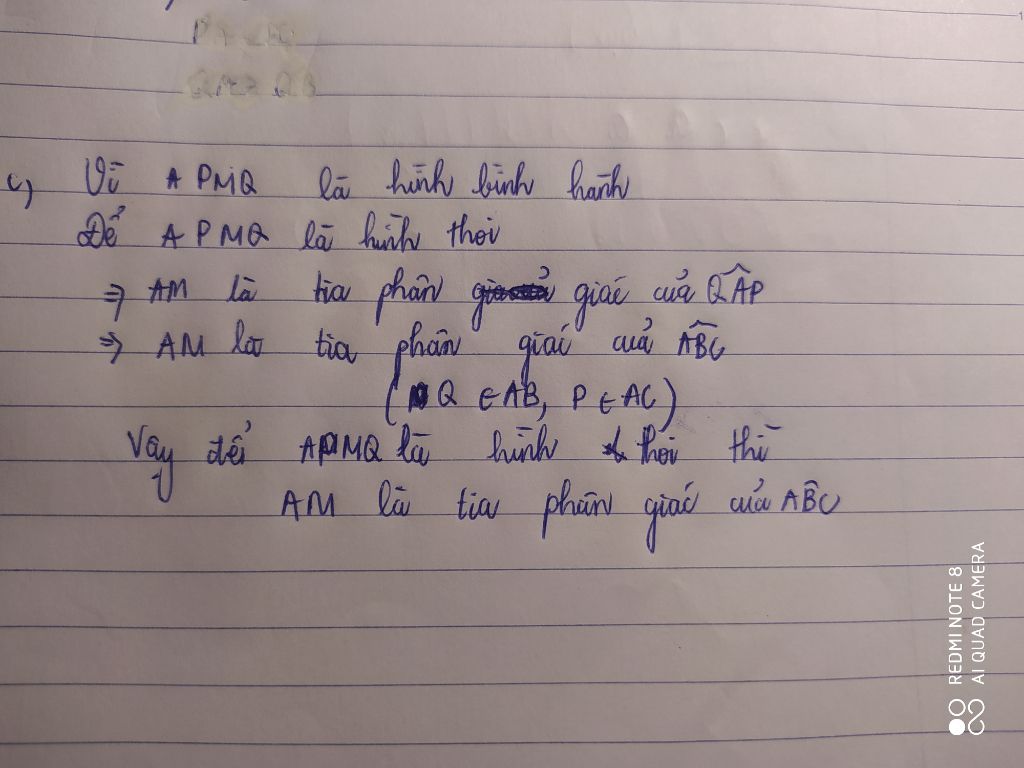 c) Vì APMQ là hình bình hành
Để APMQ là hình thoi
⇒ AM là tia phân giác của QÂP
⇒ AM là tia phân giác của AB̂C
(Q ∈ AB, P ∈ AC)
Vậy để APMQ là hình thoi thì
AM là tia phân giác của AB̂C
REDMI NOTE 8
AI QUAD CAMERA